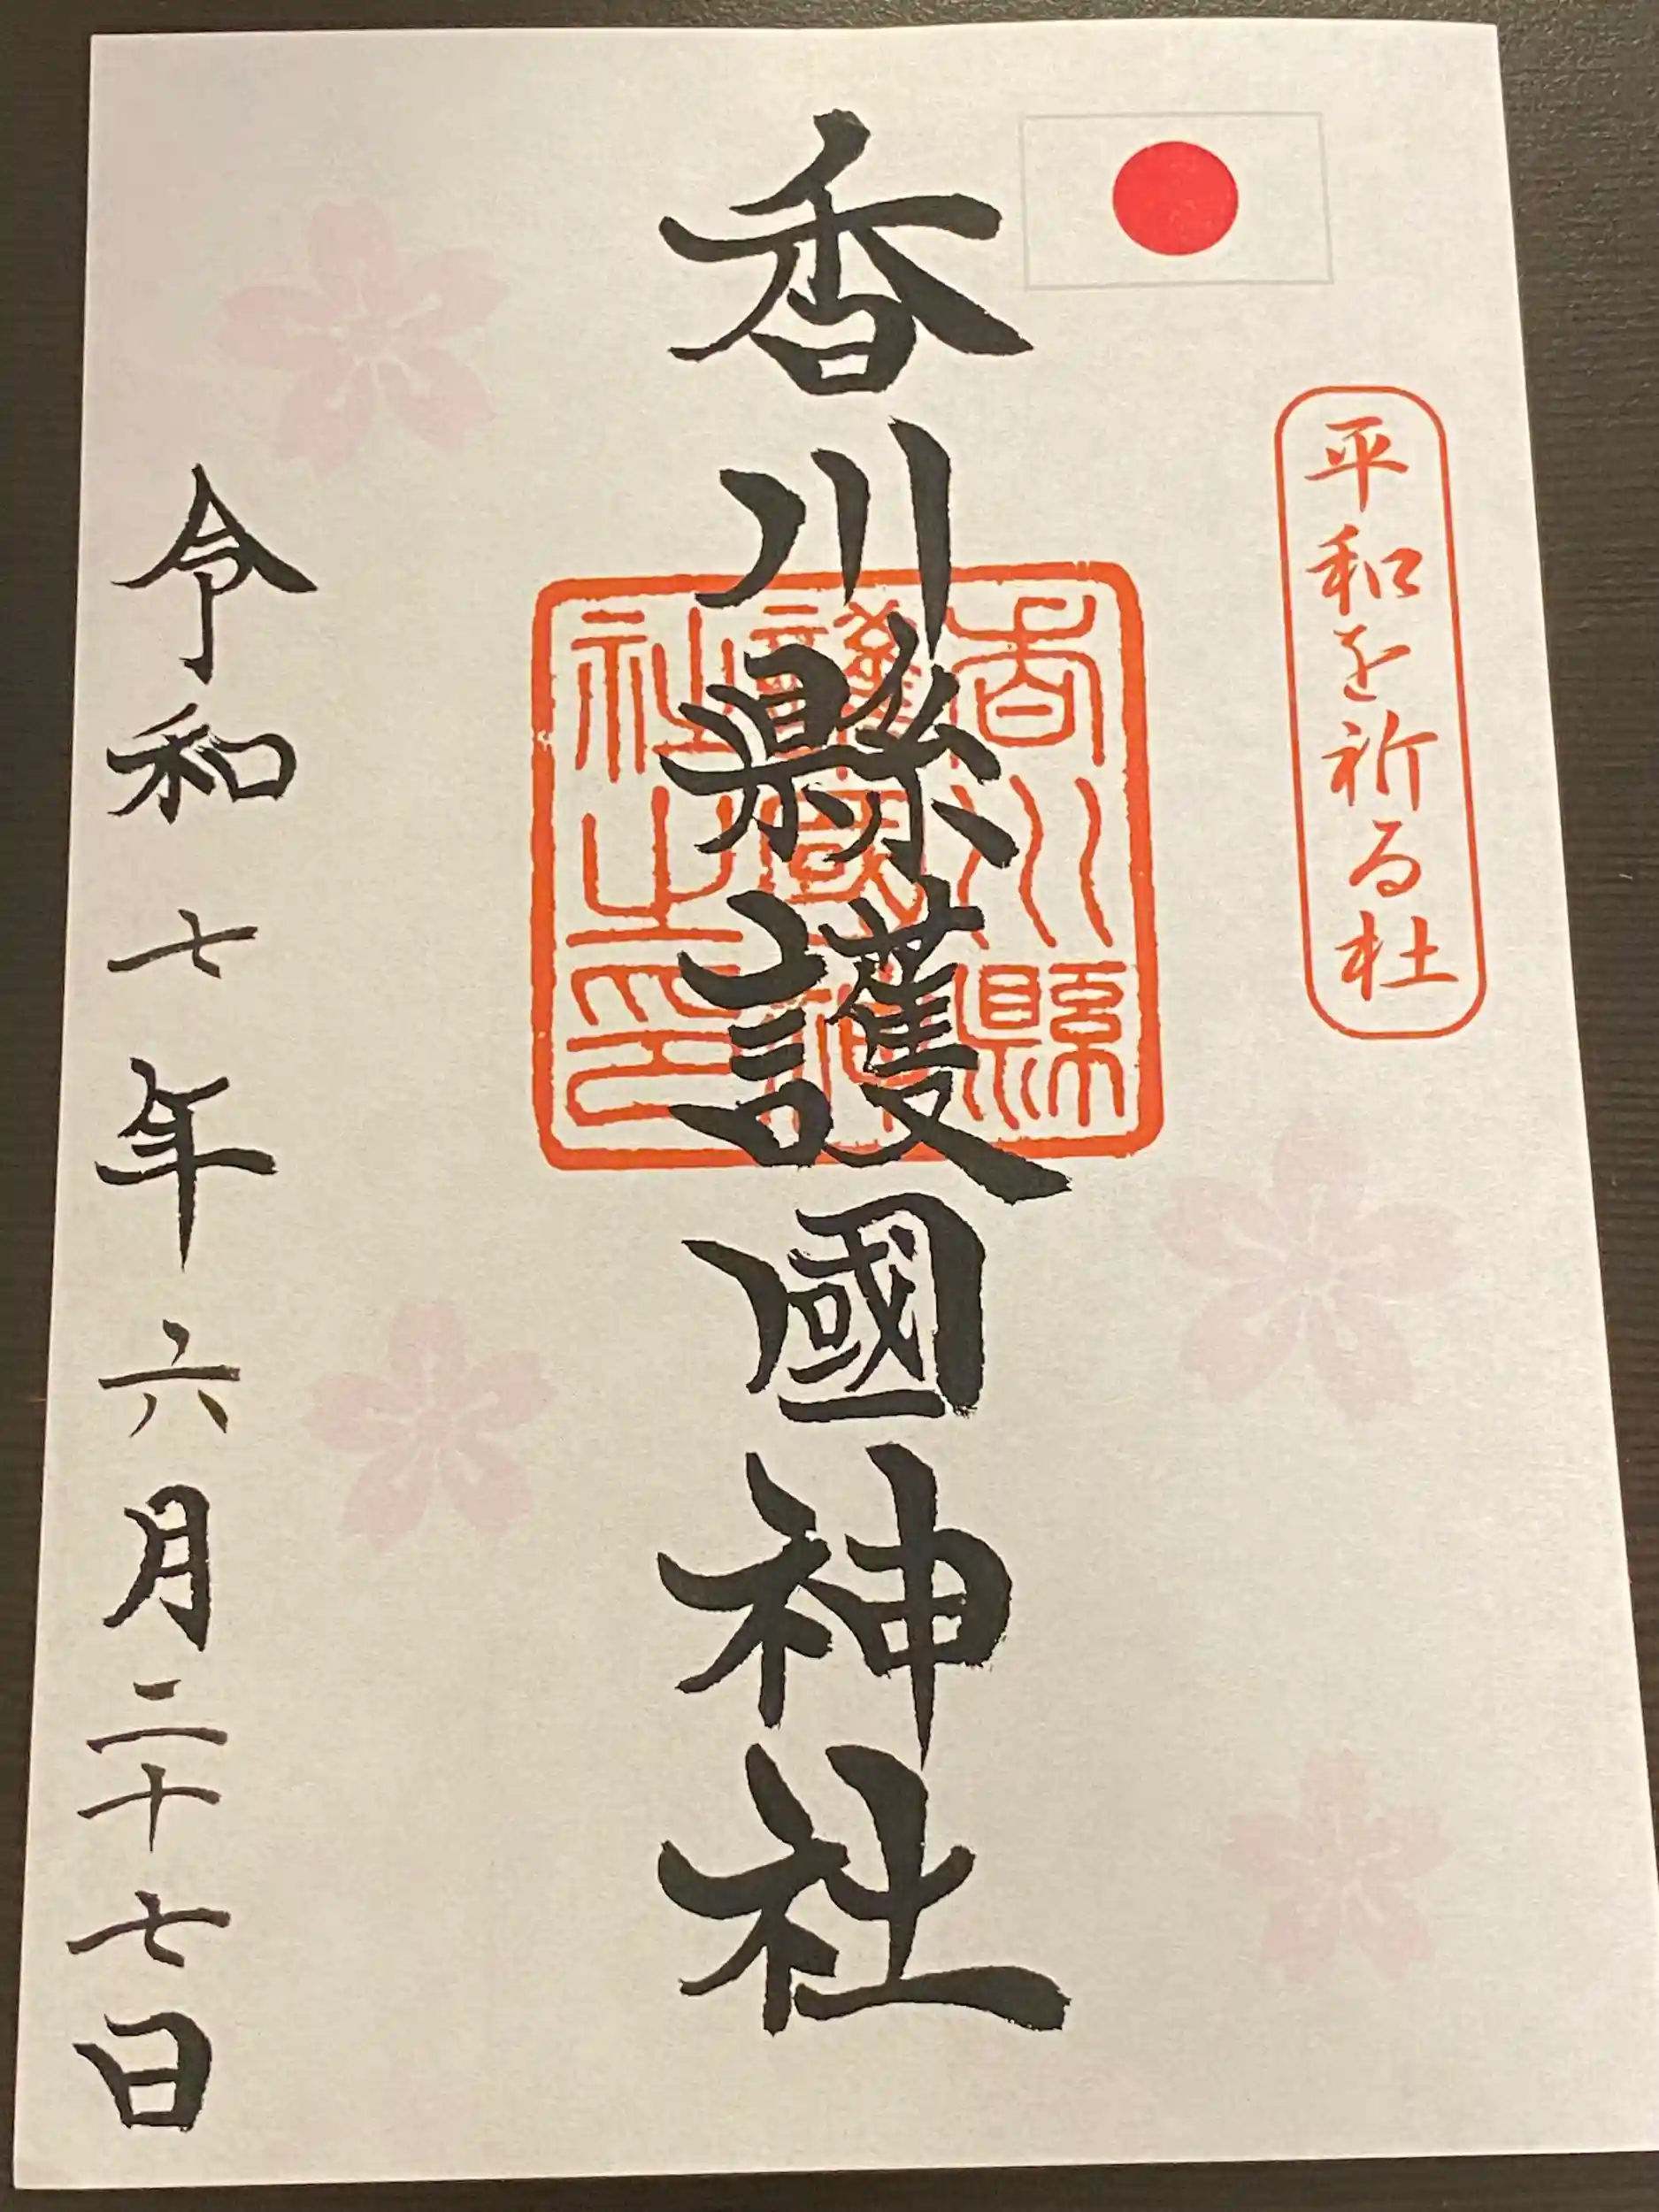 平和を祈る杜
香川縣護國神社
香川縣
護國神
社之印
令和七年六月二十七日